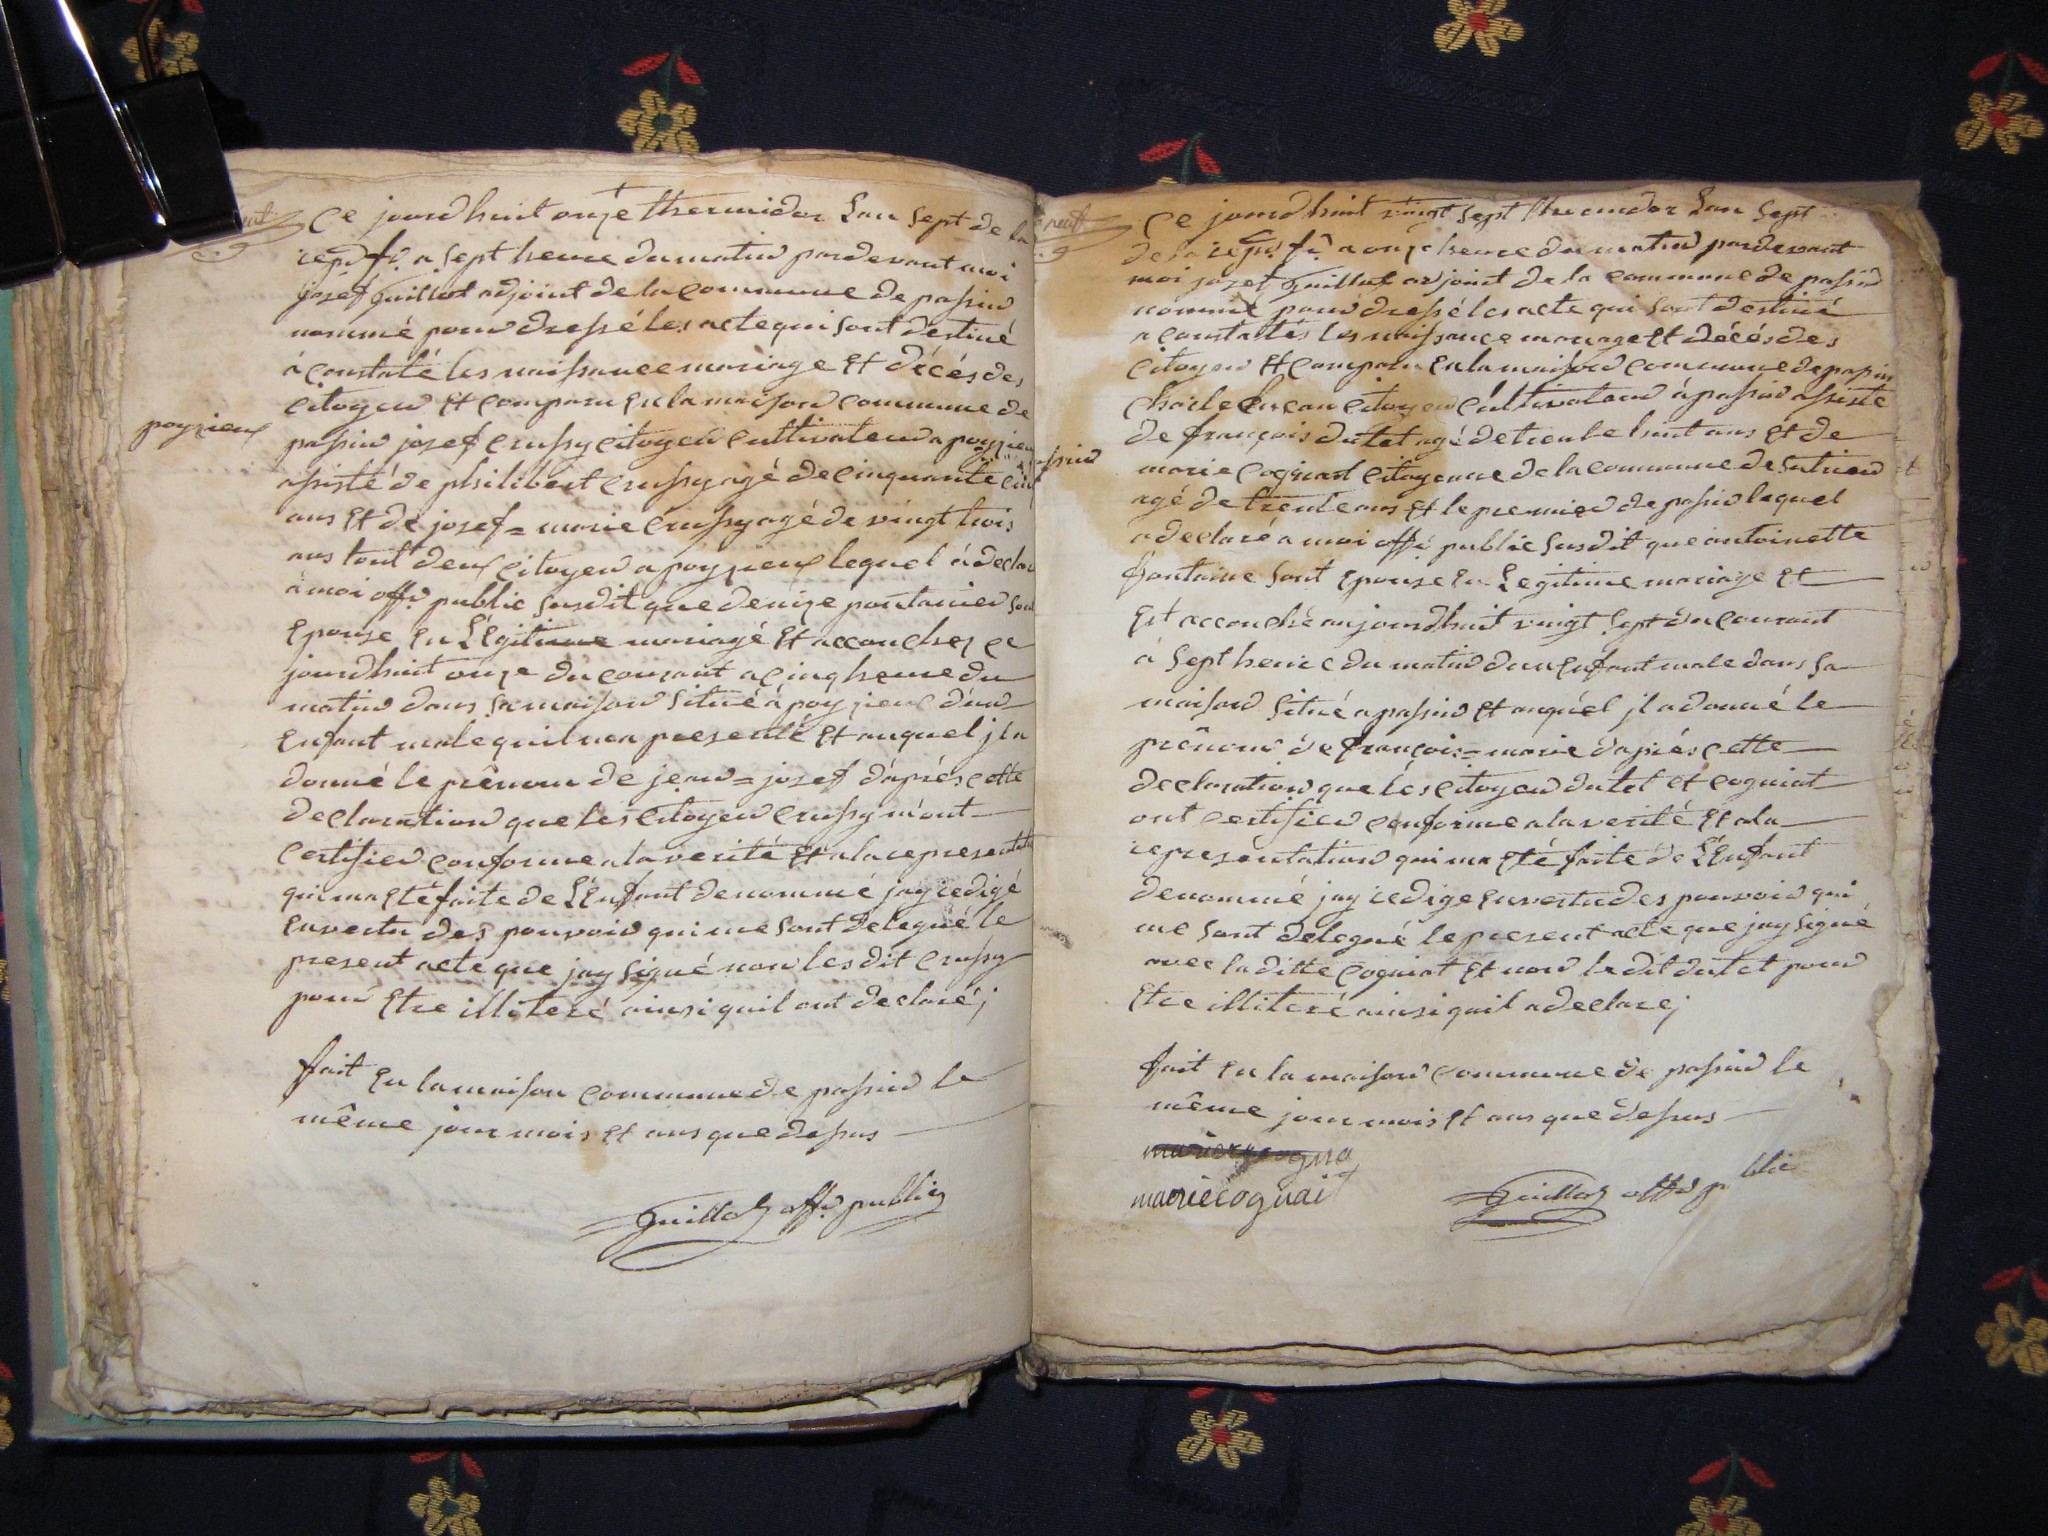 Ce jourdhuit onze thermidor Lan sept de la
repu. fr. a sept heure du matin pardevant moi
josef guillot adjoint de la commune de passin
nommé pour dressé les acte qui sont destiné
à constaté les naissance mariage et décés des
citoyen et comparu en la maison commune de
poyzieux
passin josef crussy citoyen cultivateur a poyzieu
assisté de philibert crussy agé de cinquante
ans et de josef=marie crussy agé de vingt trois
ans tout deux citoyen a poyzieux lequel à declaré
à moi offr. public susdit que denize pontanier son
epouse en Légitime mariagé et accouchez ce
jourdhuit onze du courant a cinq heure du
matin dans sa maison situé à poyzieux d'un
enfant male quil ma presenté et auquel jl a
donné le prênom de jean=josef d'aprés cette
declaration que les citoyen crussy m'ont
certifier conforme a la verité et a la representation
qui ma eté faite de L'Enfant denommé jay redigé
en vertu des pouvoir qui me sont delegué le
present acte que jay signé non les dit crussy
pour etre illiteré ainsi quil ont declaré;
fait en la maison commune de passin le
même jour mois et ans que dessus
Guillot offr. public
Ce jourdhuit vingt sept thermidor Lan sept
de la repu. fr. a onze heure du matin pardevant
moi josef Guillot adjoint de la commune de passin
nommé pour dressé les acte qui sont destiné
a constatés les naissance mariage et décés des
citoyen et comparu en la maison commune de passin
charle citoyen cultivateur à passin assisté
de françois dutet agé de trente huit ans et de
passin
marie cogniat citoyenne de la commune de
agé de trente ans et le premier de passin lequel
a declaré a moi offr. public susdit que antoinette
fontaine sont epouse en Legitime mariage et
est accouché aujourdhuit vingt sept du courant
à sept heure du matin dun enfant male dans sa
maison situé a passin et auquel jl a donné le
prênom de françois=marie d'aprés cette
declaration que lés citoyen dutet et cogniat
ont certifier conforme a la verité et a la
representation qui ma eté faite de L'Enfant
denommé jay redigé en vertu des pouvoir qui
me sont delegué le present acte que jay signé
avec la ditte cogniat et non le dit dutet pour
etre illiteré ainsi quil a declaré;
fait en la maison commune de passin le
même jour mois et ans que dessus
marie cogniat
Guillot offr public